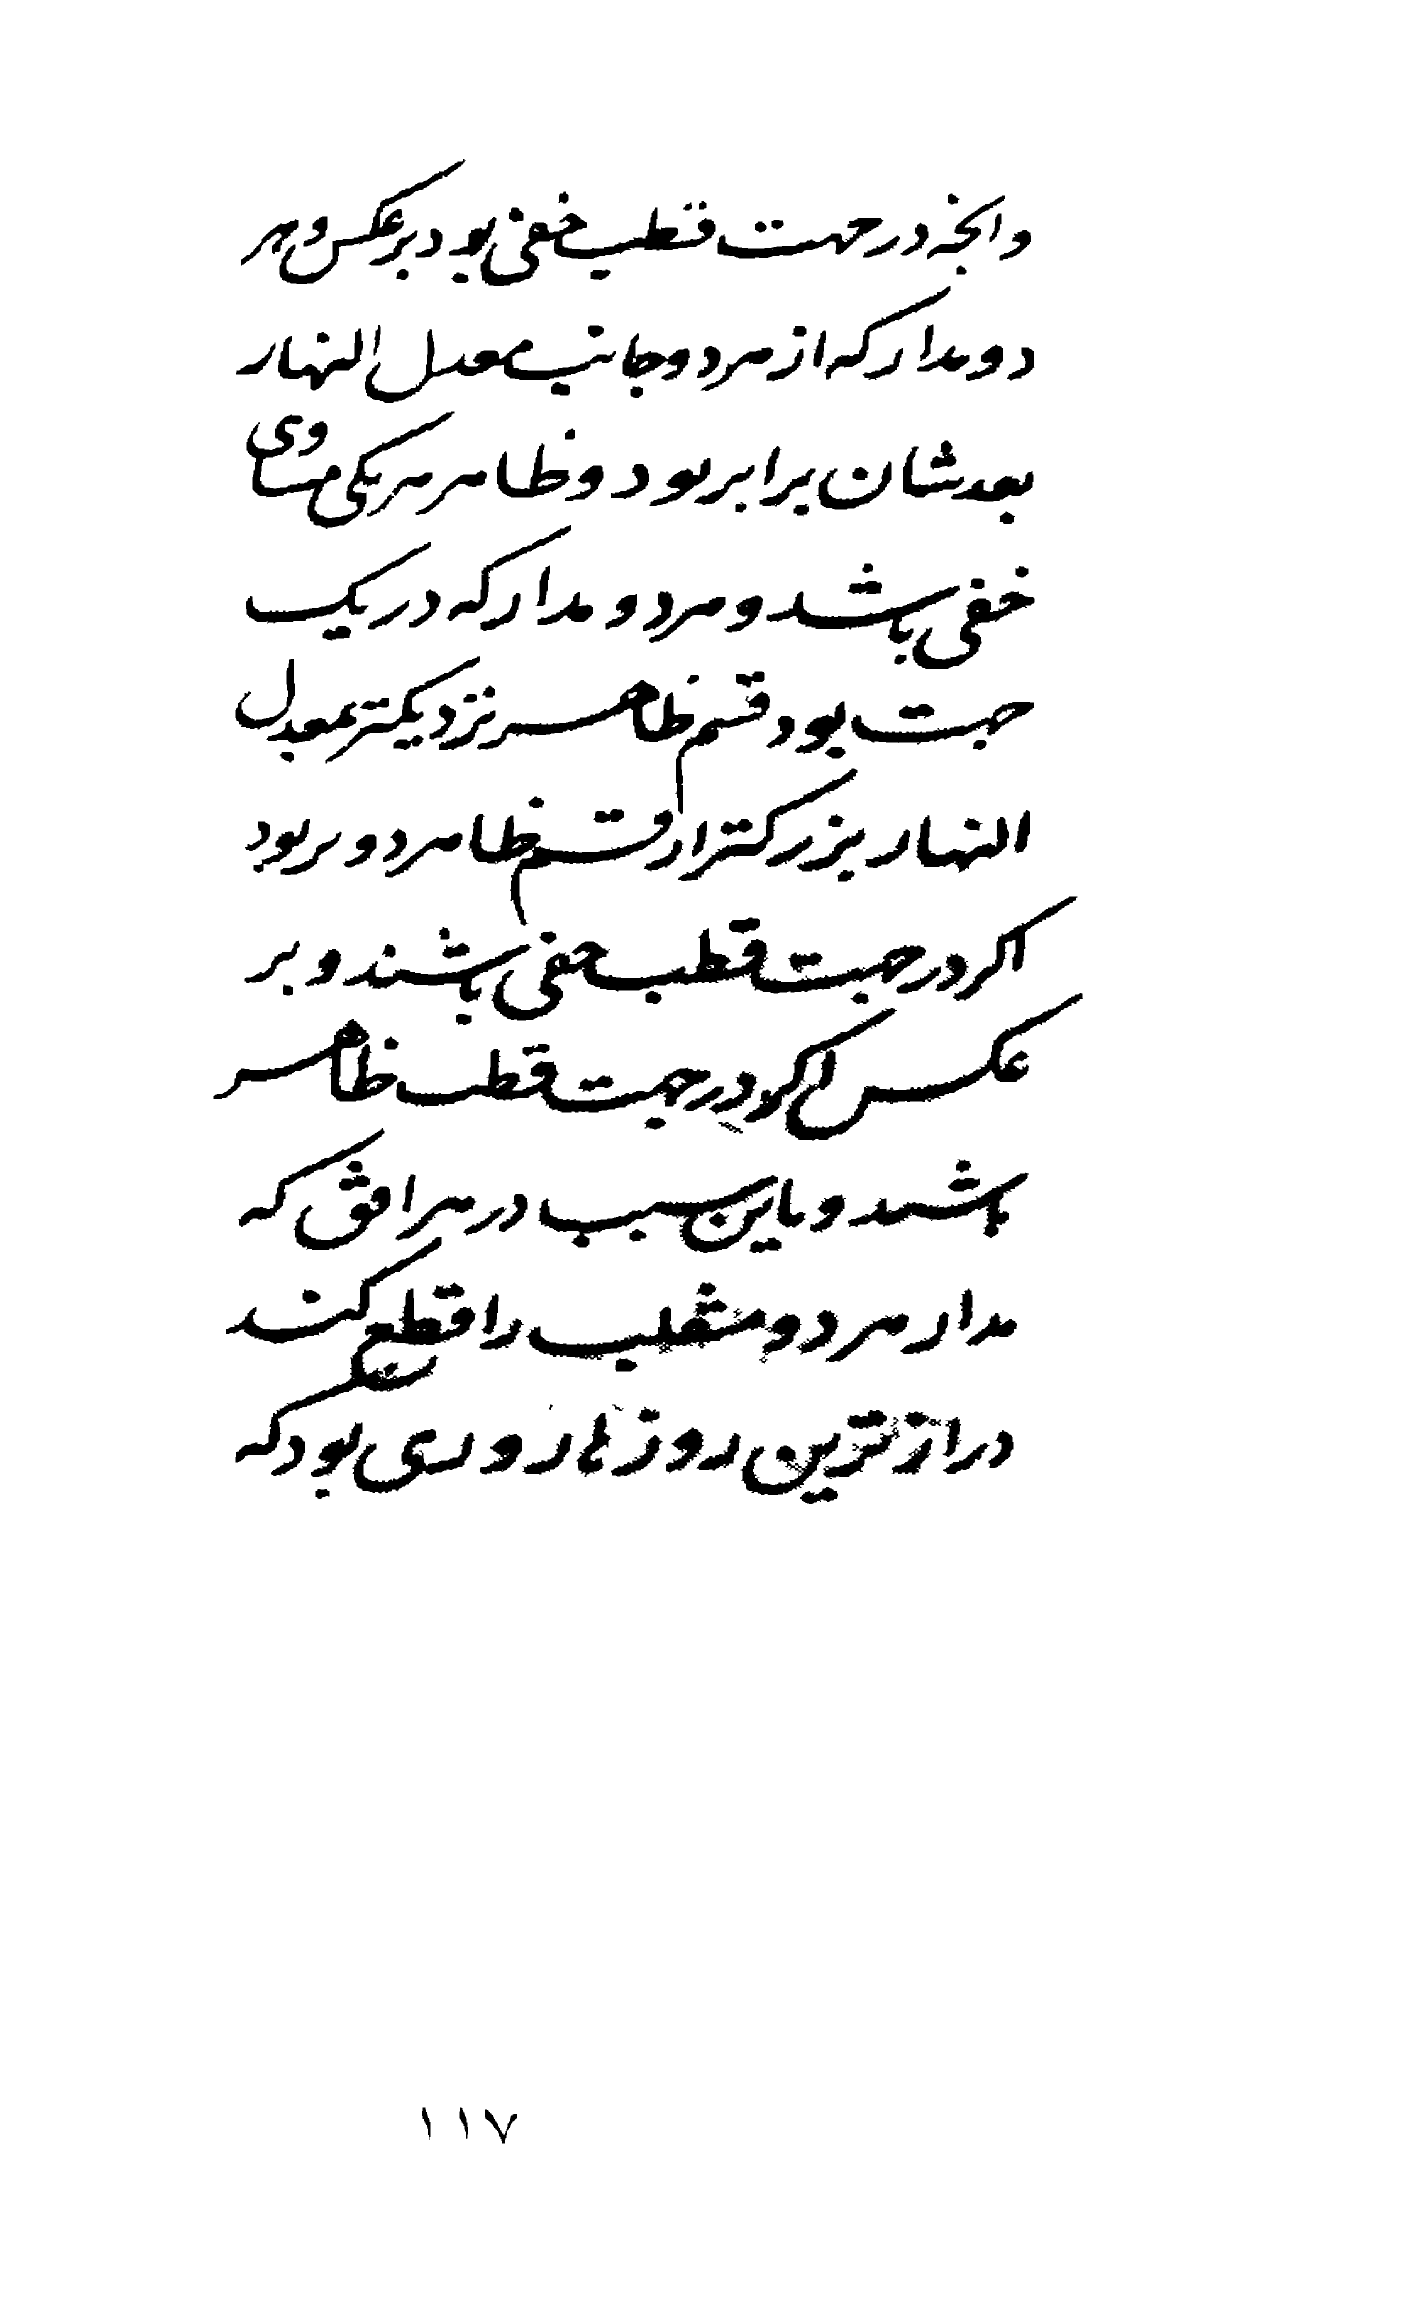 وانچه در جهت قطب خفی بود بر عکس و هر
دو مدار که از هر دو جانب معدل النهار
بعدشان برابر بود و ظاهر هر یکی مساوی
خفی باشد و هر دو مدار که در یک
جهت بود قسم ظاهر نزدیکتر بمعدل
النهار بزرکتر از قسم ظاهر دورتر بود
اکر در جهت قطب خفی باشند و بر
عکس ان اکر در جهت قطب ظاهر
باشند و باین سبب در هر افق که
مدار هر دو منقلب را قطع کند
درازترین روزها روزی بود که
۱۱۷